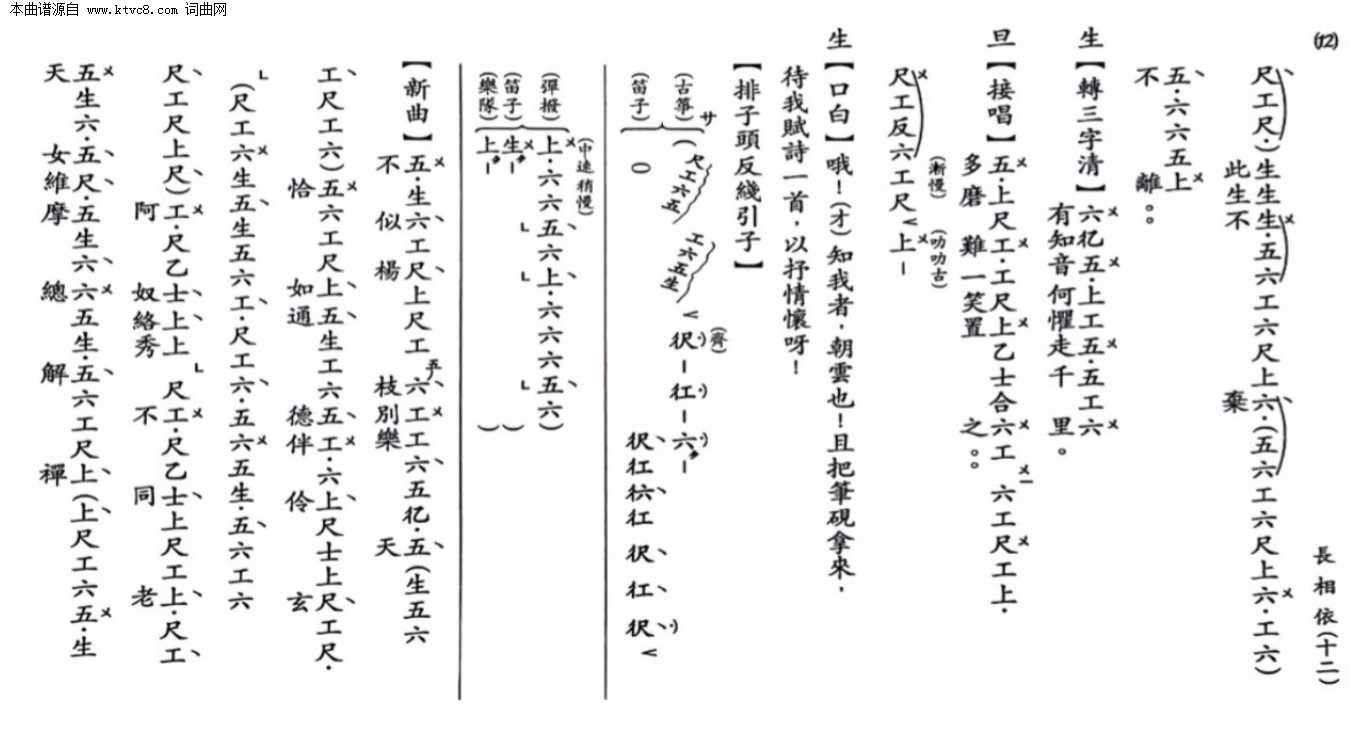 本曲谱源自 www.ktvc8.com 词曲网
(12)
長相依(十二)
尺工尺·)生生生·五六工六尺上六·(五六工六尺上六·工六)
此生不 棄
五·六六五上
不 離。。
生【轉三字清】六伬五·上工五·五工六
有知音何懼走千 里。
旦【接唱】五·上尺工·工尺上乙士合·六工 六工尺工上·
多磨 難一笑置 之。。
尺工反六工尺 上—
(漸慢) (叻叻古)
生【口白】哦!(才)知我者,朝雲也!且把筆硯拿來,
待我賦詩一首,以抒情懷呀!
【排子頭反綫引子】
(古箏) サ ( 尺工六五 工六五生 伬 — 仜 — 六 —
(齊)
(笛子) 0 伬仜 仜 伬 仜 伬
(中速稍慢)
(彈撥) 上·六六五六上·六六六五六)
(笛子) 生— )
(樂隊) 上— )
【新曲】五·生六工尺上尺工六工工六五伬·五(生五六
不 似 楊 枝別樂 天
工尺工六)五六工尺上五生工六五工·六上尺士上尺工尺·
恰 如通 德伴 伶 玄
(尺工六生五生五六工·尺工六·五六五生·五六工六
尺工尺上尺)工·尺乙士上上 尺工·尺乙士上尺工上·尺工
阿 奴絡秀 不 同 老
五生六·五尺·五生六·六五生·五六工尺上(上尺工六五·生
天 女維摩 總 解 禪